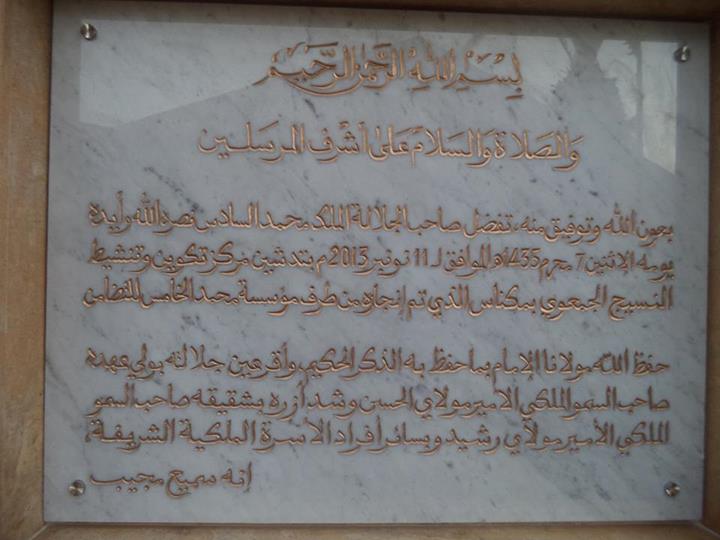 بسم الله الرحمن الرحيم
والصلاة والسلام على أشرف المرسلين
بعون الله وتوفيق منه، تفضل صاحب الجلالة الملك محمد السادس نصره الله وأيده
يومه الإثنين 7 محرم 1435ه الموافق لـ 11 نونبر 2013م بتدشين مركز تكوين وتنشيط
النسيج الجمعوي بمكناس الذي تم إنجازه من طرف مؤسسة محمد الخامس للتضامن
حفظ الله مولانا الإمام بما حفظ به الذكر الحكيم، وأقر عين جلالته بولي عهده
صاحب السمو الملكي الأمير مولاي الحسن وشد أزره بشقيقه صاحب السمو
الملكي الأمير مولاي رشيد وبسائر أفراد الأسرة الملكية الشريفة،
إنه سميع مجيب